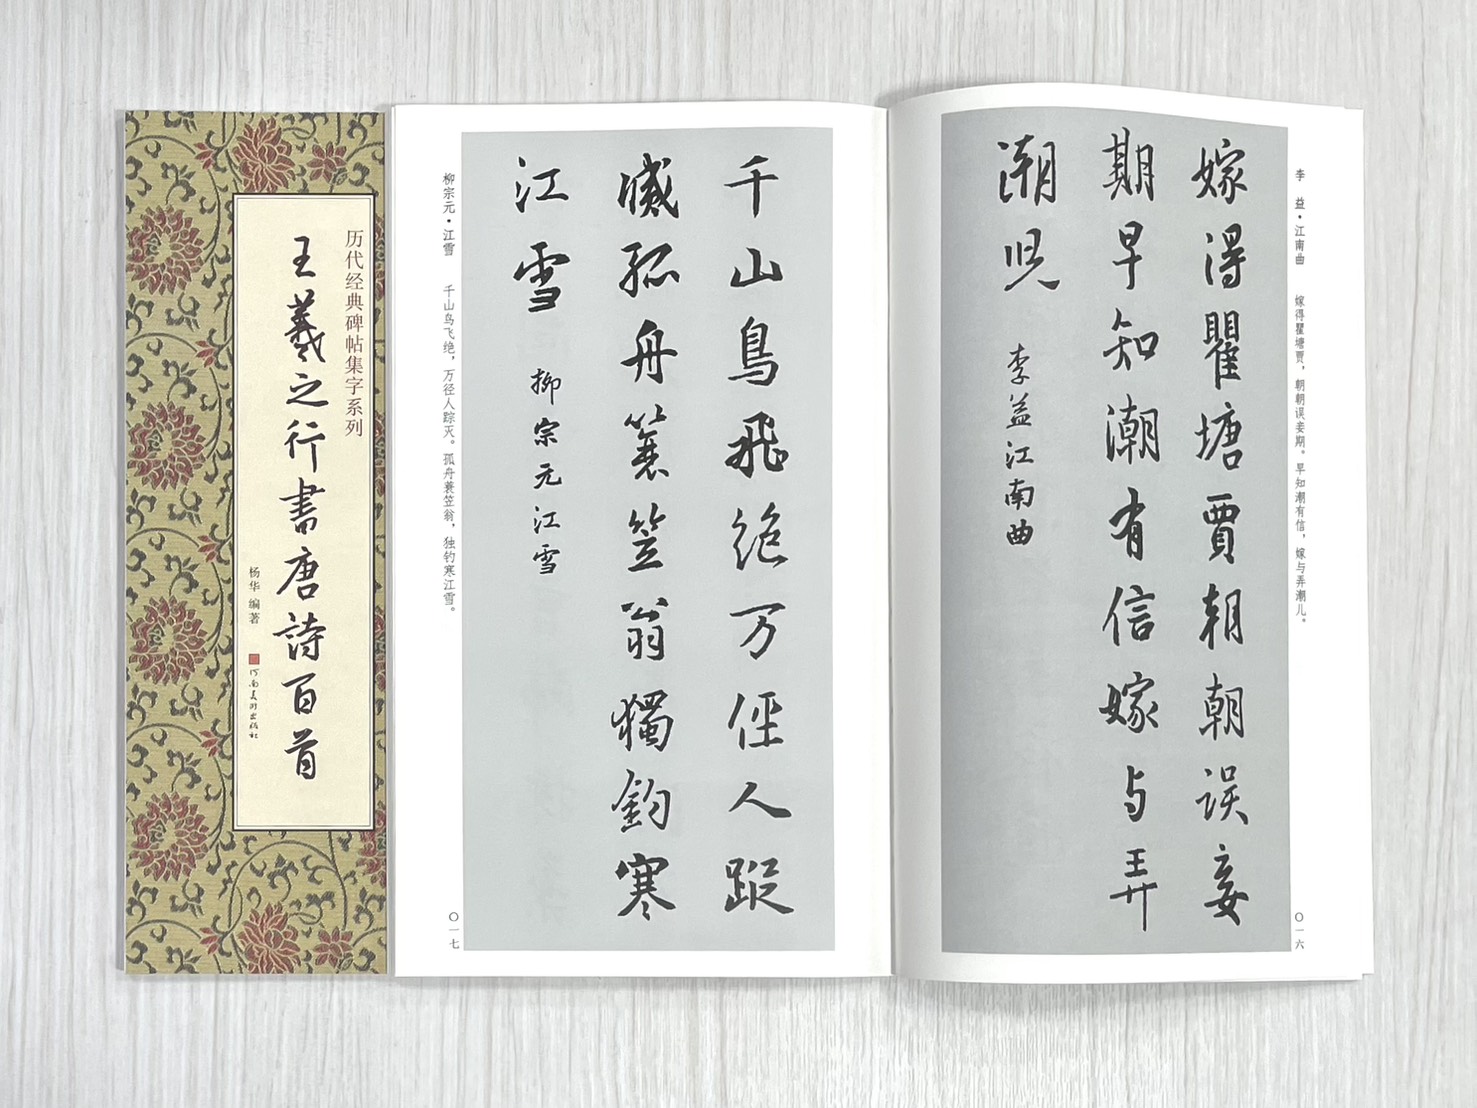 历代经典碑帖集字系列
王羲之行書唐詩百首
杨华 编著
河南美术出版社
李 益·江南曲 嫁得瞿塘贾，朝朝误妾期。早知潮有信，嫁与弄潮儿。
〇一六
嫁得瞿塘賈朝朝誤妾
期早知潮有信嫁与弄
潮児
李益江南曲
柳宗元·江雪 千山鸟飞绝，万径人踪灭。孤舟蓑笠翁，独钓寒江雪。
〇一七
千山鳥飛絶万徑人蹤
滅孤舟簑笠翁獨釣寒
江雪
柳宗元江雪